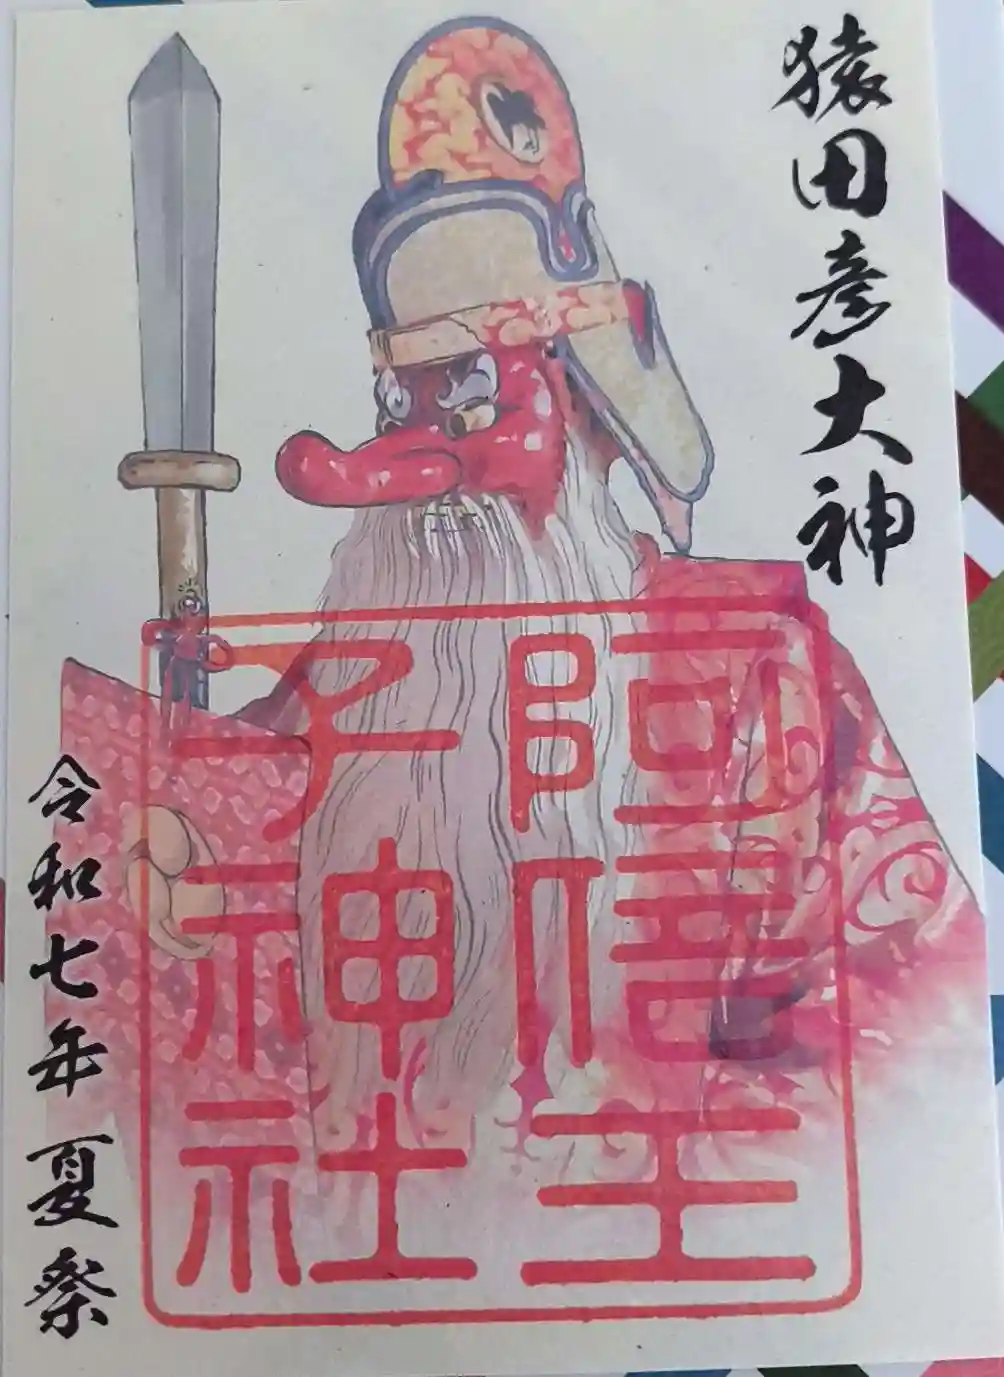 猿田彦大神
阿倍王
子神社
令和七年 夏祭